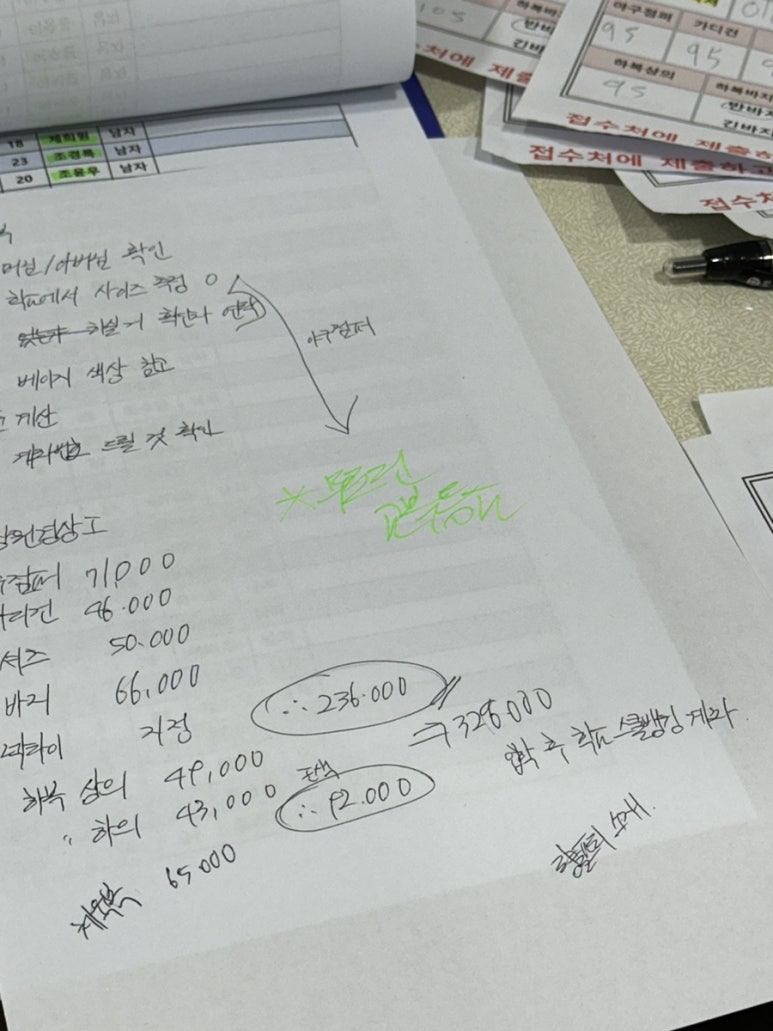 105
하복바
반바
긴바지
접수처에 제출하
야구점퍼
가디건
95
95
하복상의
하복바지
95
반바지
긴바지
접수처에 제출하
접수처에 제출하고
접수처
18 남자
23 조경록 남자
20 조윤우 남자
/아버님 확인
학교에서 사이즈 측정 O
확인 연락
야구점퍼
베이지 색상 참고
계산
계좌번호 드릴 것 확인
점퍼 71,000
46.000
셔츠 50.000
바지 66,000
∴ 236.000
넥타이 지정
⇒ 328.000
하복 상의 49,000
입학 후 학교 스쿨뱅킹 계좌
〃 하의 43,000
∴ 92.000
체육복 65.000